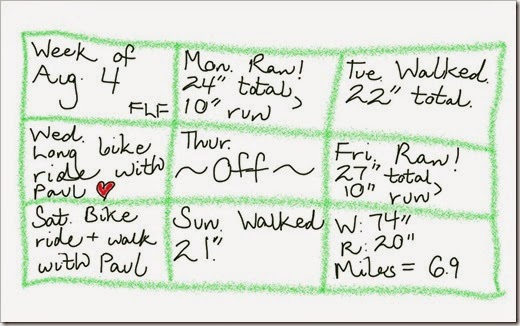 Week of
Aug. 4
FLF
Mon. Ran!
24" total,
10" run
Tue. Walked.
22" total.
Wed.
Long bike
ride with
Paul
Thur.
~Off~
Fri. Ran!
27" total,
10" run
Sat. Bike
ride + walk
with Paul
Sun. Walked
21".
W: 74"
R: 20"
Miles = 6.9